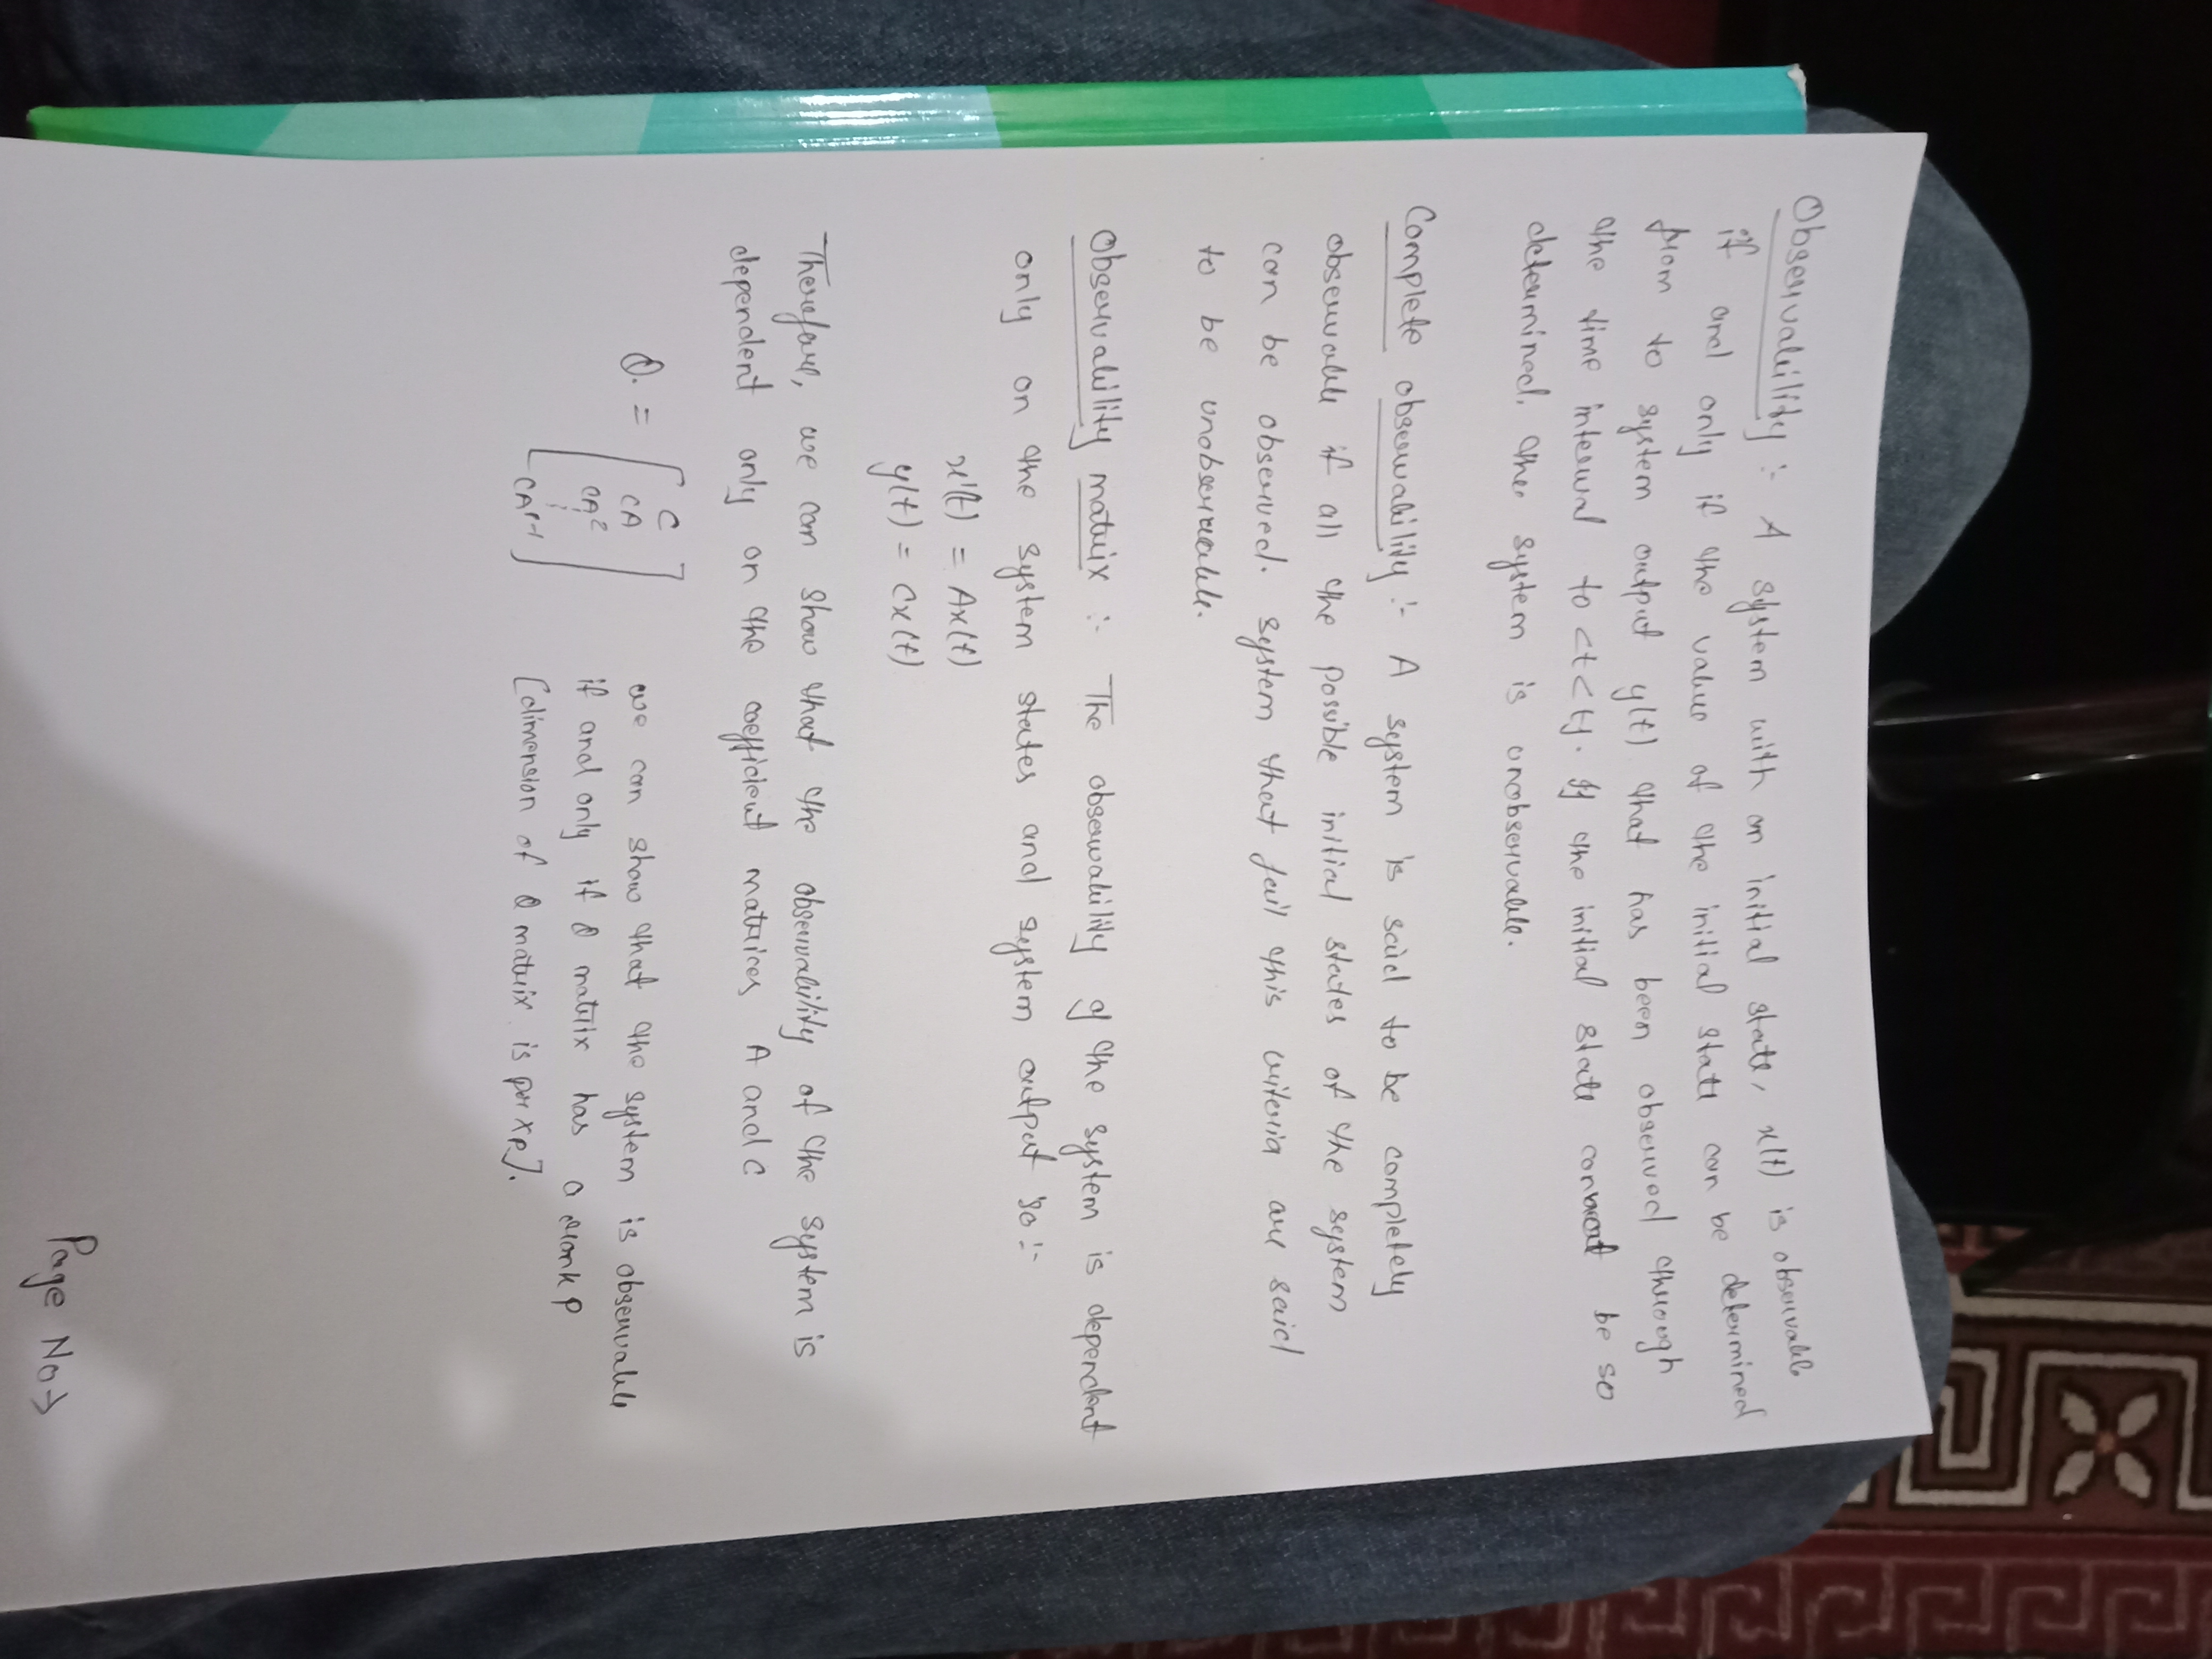 Observability :- A system with an initial state, x(t) is observable
if and only if the value of the initial state can be determined
from to system output y(t) that has been observed through
the time interval to <t<tf. If the initial state cannot be so
determined, the system is unobservable.
Complete observability :- A system is said to be completely
observable if all the possible initial states of the system
can be observed. system that fail this criteria are said
to be unobservable.
Observability matrix :- The observability of the system is dependent
only on the system states and system output so :-
x'(t) = Ax(t)
y(t) = Cx(t)
Therefore, we can show that the observability of the system is
dependent only on the coefficient matrices A and C
Q. = [ C
CA
CA²
⋮
CAᵖ⁻¹ ]
we can show that the system is observable
if and only if Q matrix has a rank p
[dimension of Q matrix is pr xp].
Page No→